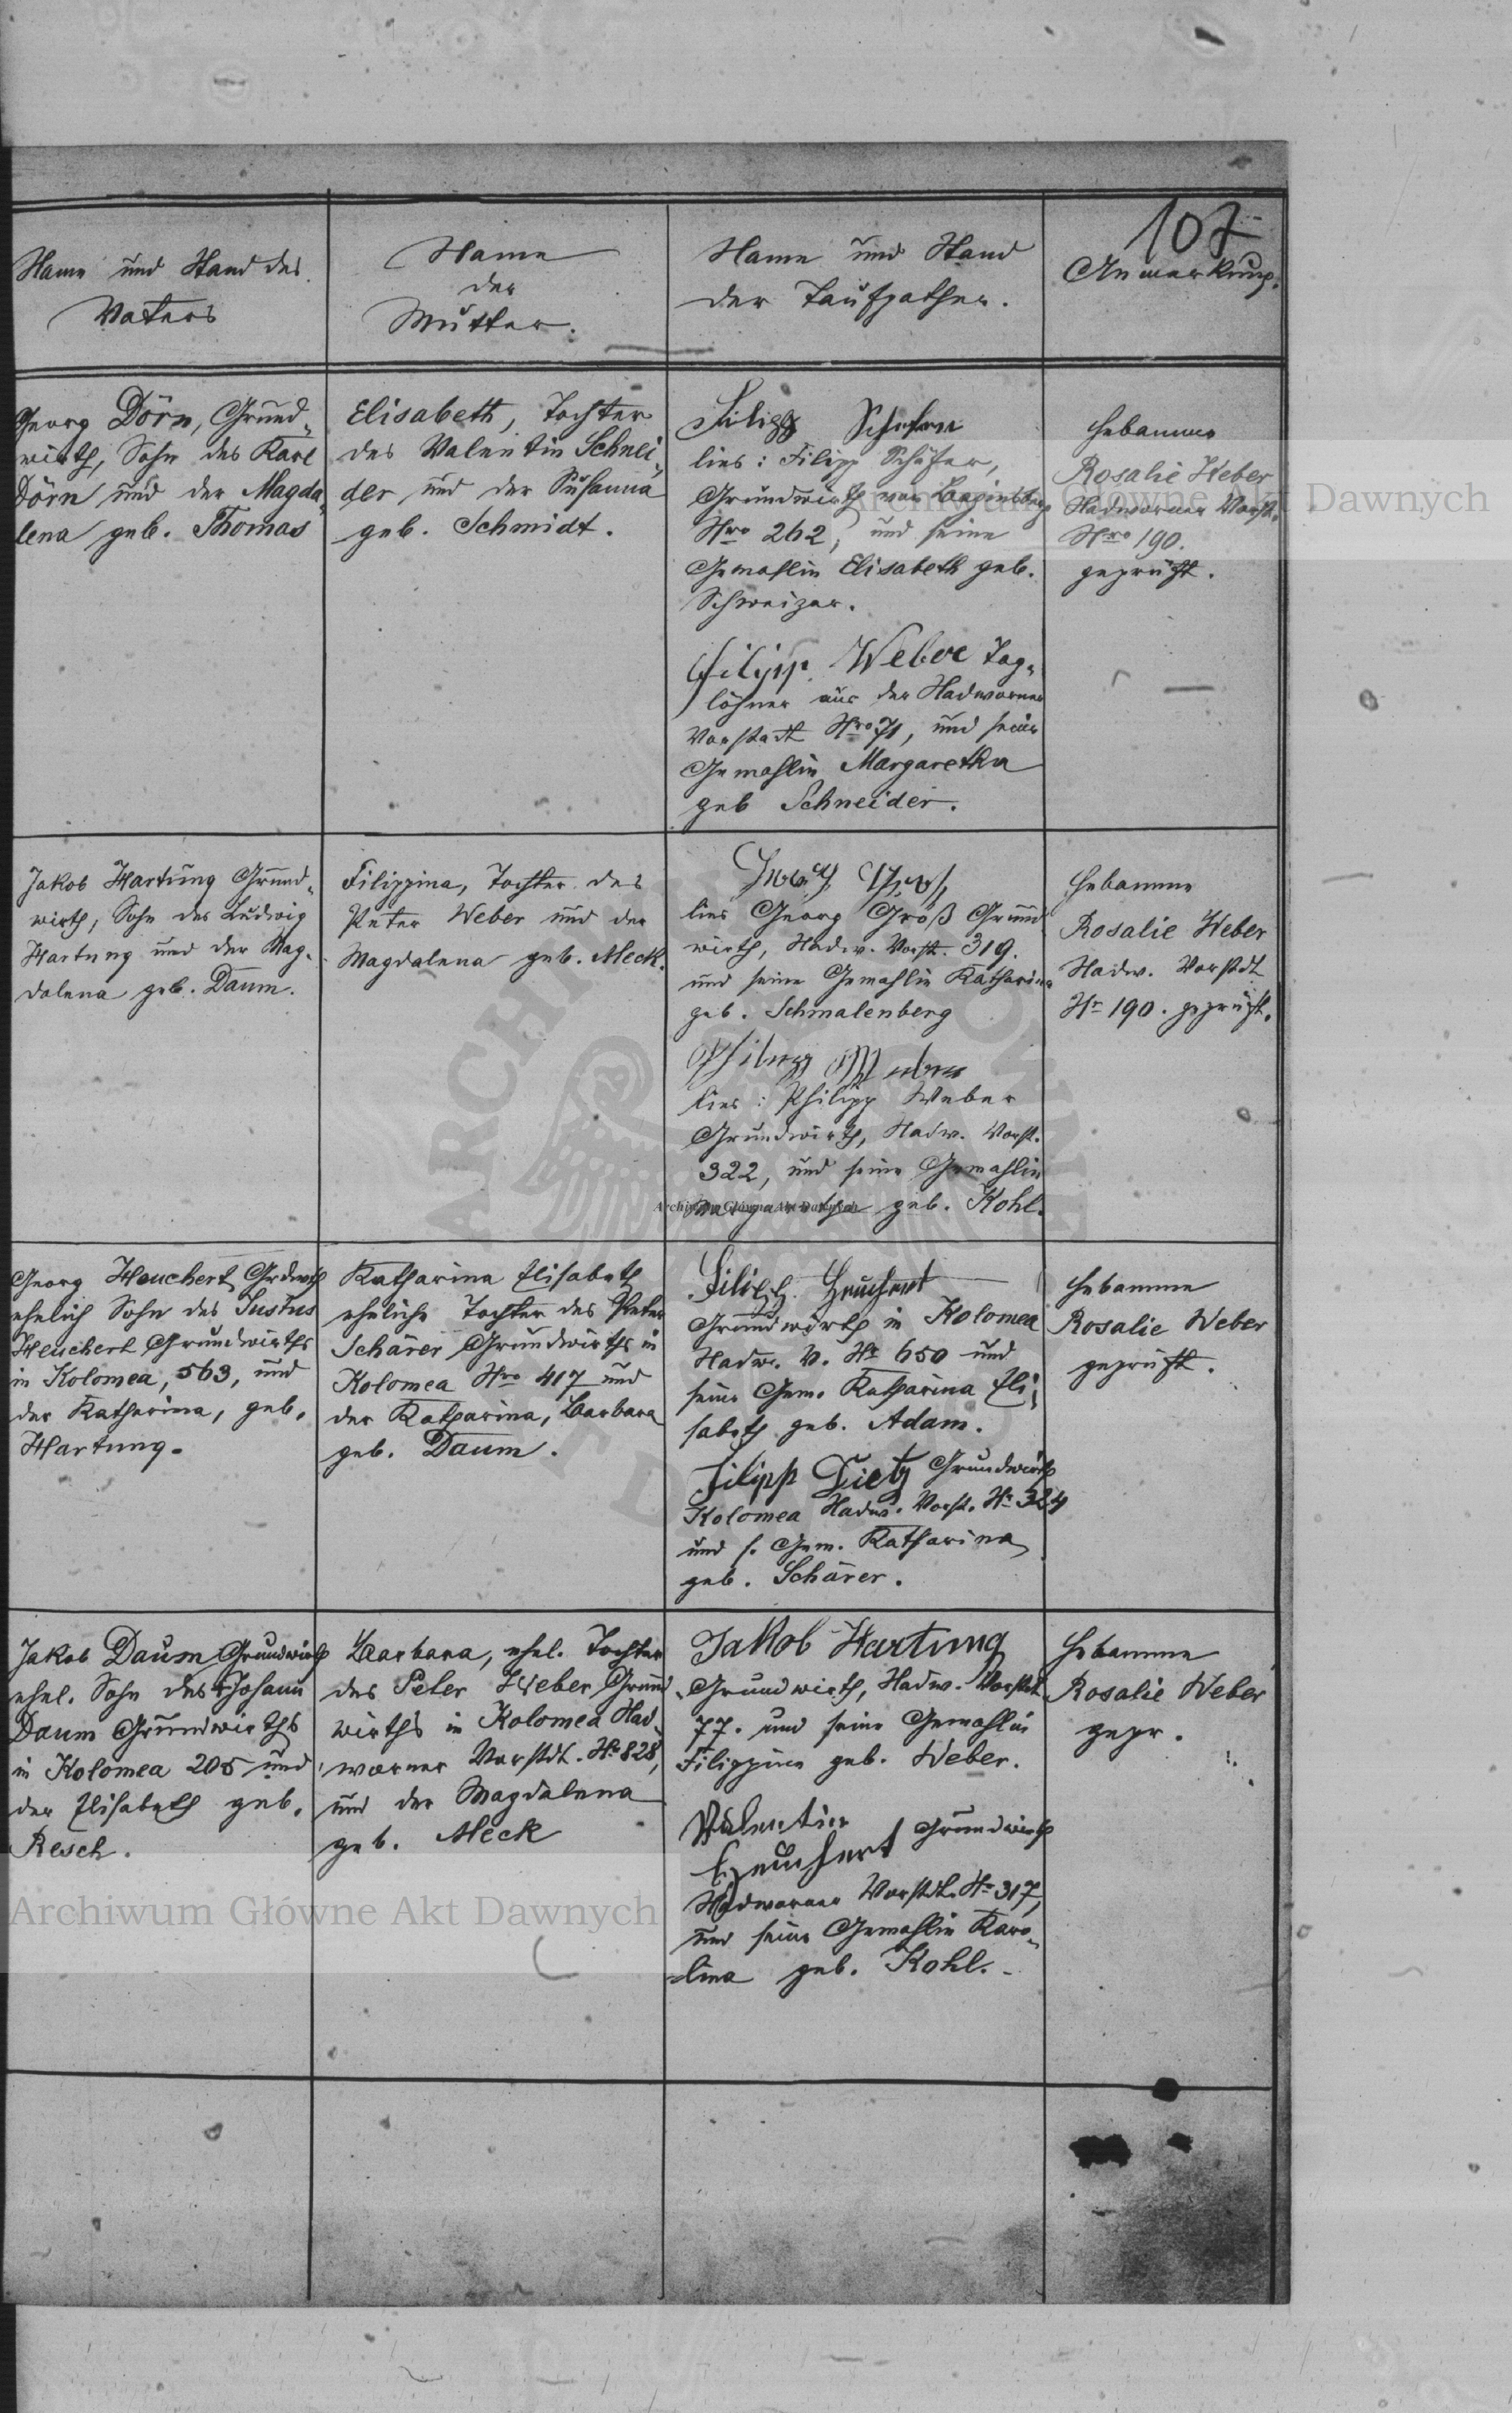 107
Name und Stand des
Vaters
Name
der
Mutter.
Name und Stand
der Taufpathen.
Anmerkung.
Georg Dörn, Grund„
wirth, Sohn des Karl
Dörn und der Magda„
lena geb. Thomas
Elisabeth, Tochter
des Valentin Schnei„
der und der Susanna
geb. Schmidt.
Filipp Schefer
lies: Filipp Schäfer,
Grundwirth von Baginsberg
Nro 262, und seine
Gemahlin Elisabeth geb.
Schweizer.
Filipp Weber Tag„
löhner aus der Nadworner
Vorstadt Nro 71, und seine
Gemahlin Margaretha
geb Schneider.
Hebamme
Rosalie Weber
Nadworner Vorst.
Nro 190.
geprüft.
Jakob Hartung Grund„
wirth, Sohn des Ludwig
Hartung und der Mag„
dalena geb. Daum.
Filippina, Tochter des
Peter Weber und der
Magdalena geb. Meck.
lies Georg Groß Grund
wirth, Nadw. Vorst. 319.
und seine Gemahlin Katharina
geb. Schmalenberg
Philipp Weber
lies: Philipp Weber
Grundwirth, Nadw. Vorst.
322, und seine Gemahlin
Margaretha geb. Kohl.
Hebamme
Rosalie Weber
Nadw. Vorstdt
Nr 190. geprüft.
Georg Heuchert Grdwth
ehelich Sohn des Justus
Heuchert Grundwirths
in Kolomea, 563, und
der Katharina, geb.
Hartung.
Katharina Elisabeth
eheliche Tochter des Peter
Schärer Grundwirths in
Kolomea Nro 417 und
der Katharina, Barbara
geb. Daum.
Filipp Heuchert
Grundwirth in Kolomea
Nadw. V. Nr 650 und
seine Gem. Katharina Eli„
sabeth geb. Adam.
Filipp Dietz Grundwirth
Kolomea Nadw. Vorst. Nr 324
und s. Gem. Katharina
geb. Schärer.
Hebamme
Rosalie Weber
geprüft.
Jakob Daum Grundwirth
ehel. Sohn des Johann
Daum Grundwirths
in Kolomea 205 und
der Elisabeth geb.
Resch.
Barbara, ehel. Tochter
des Peter Weber Grund„
wirths in Kolomea Nad„
worner Vorstdt. Nr 828,
und der Magdalena
geb. Meck
Jakob Hartung
Grundwirth, Nadw. Vorstdt
77. und seine Gemahlin
Filippine geb. Weber.
Valentin
Heuchert Grundwirth
Nadworner Vorstdt. Nr 317,
und seine Gemahlin Karo„
lina geb. Kohl.
Hebamme
Rosalie Weber
gepr.
Archiwum Główne Akt Dawnych
Archiwum Główne Akt Dawnych
Archiwum Główne Akt Dawnych